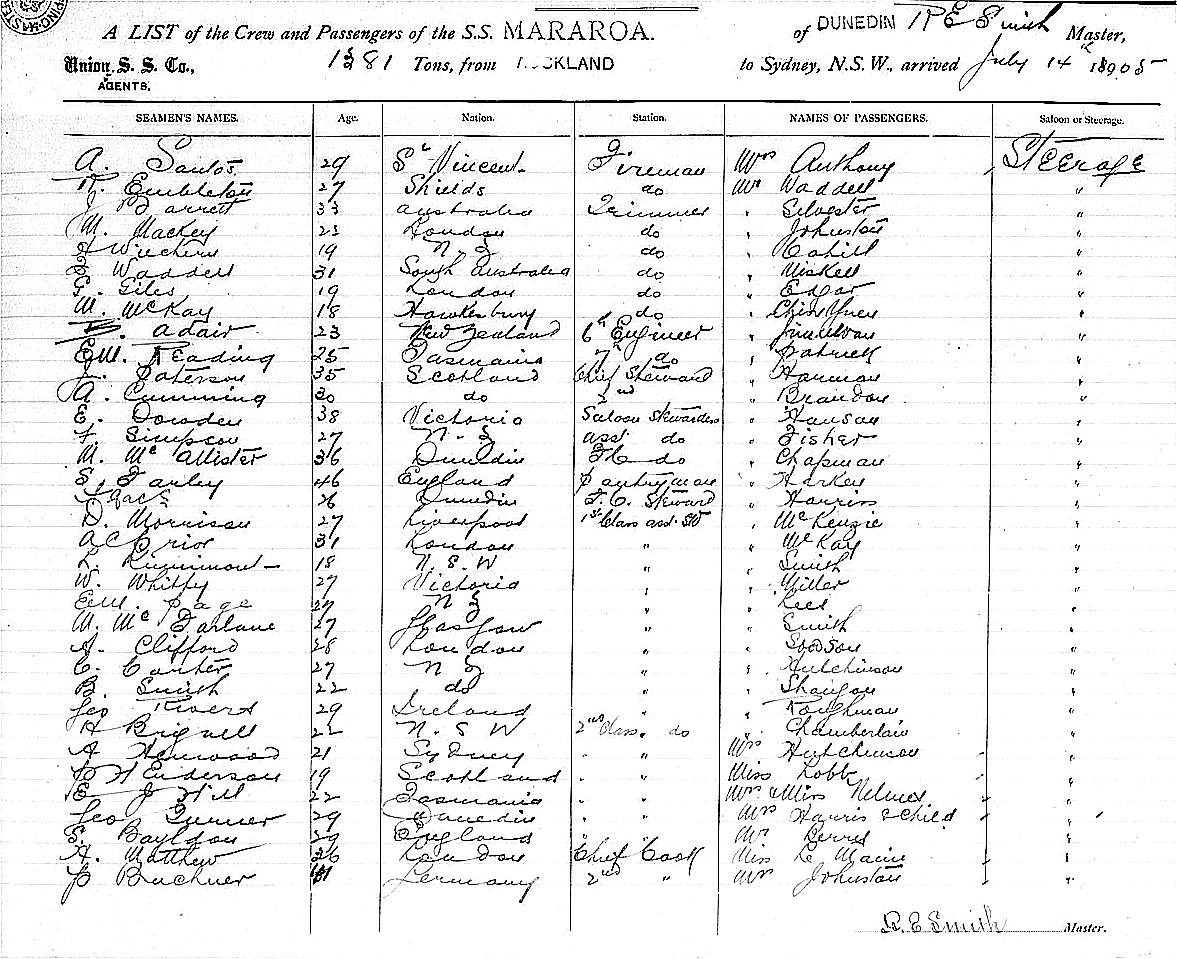 A LIST of the Crew and Passengers of the S.S. MARAROA. of DUNEDIN R E Smith Master,
Union S. S. Co., AGENTS. 1381 Tons, from AUCKLAND to Sydney, N.S.W., arrived July 14th 1905
SEAMEN'S NAMES. Age. Nation. Station. NAMES OF PASSENGERS. Saloon or Steerage.
A. Santos 29 St Vincent Fireman Mrs Anthony Steerage
R. Embleton 27 Shields do Mr Waddell "
J Barrett 33 Australia Trimmer " Silvester "
M. Mackey 23 London do " Johnston "
19 N. Z do " Cahill "
Waddell 31 South Australia do " Miskell "
G. Giles 19 London do " Edgar "
M. McKay 18 Hawkesbury do " "
B. Adair 23 New Zealand 6th Engineer " "
E.W. Reading 25 Tasmania 7th do " Patrick "
J. Paterson 35 Scotland Chief Steward " Harman "
A. Cumming 30 do 2nd " Brandon "
E. Dowden 38 Victoria Saloon Stewardess " Hanson "
F. Simpson 27 N. Z asst do " Fisher "
M. McAllister 36 Dunedin F C do " Chapman "
S. Farley 46 England Pantryman " Harker "
26 Dunedin F. C. Steward " Harris "
D. Morrison 27 Liverpool 1st Class asst. Std " McKenzie "
A C Prior 31 London " " McKay "
18 N. S. W " " Smith "
W. Whitty 27 Victoria " " Miller "
E.W. Page 27 N Z " " Lees "
M. McFarlane 27 Glasgow " " Smith "
A. Clifford 28 London " " Goodson "
C. Carter 27 N Z " " Hutchinson "
B. Smith 22 do " " "
Geo Rivers 29 Ireland " " Loughman "
H Bignell 22 N. S W 2nd Class " do " Chamberlain "
A Henwood 21 Sydney " " Mrs Hutchinson "
P Henderson 19 Scotland " " Miss Lobb "
E J Hill 22 Tasmania " " Mrs & Miss Nelmes "
Geo Turner 29 Dunedin " " Mrs Harris & Child "
S. Bayldon 29 England " " Mr Berry "
A. Matthew 26 London Chief Cook Miss Le Maine "
P Bruchner Germany 2nd " Mrs Johnston "
R. E Smith Master.